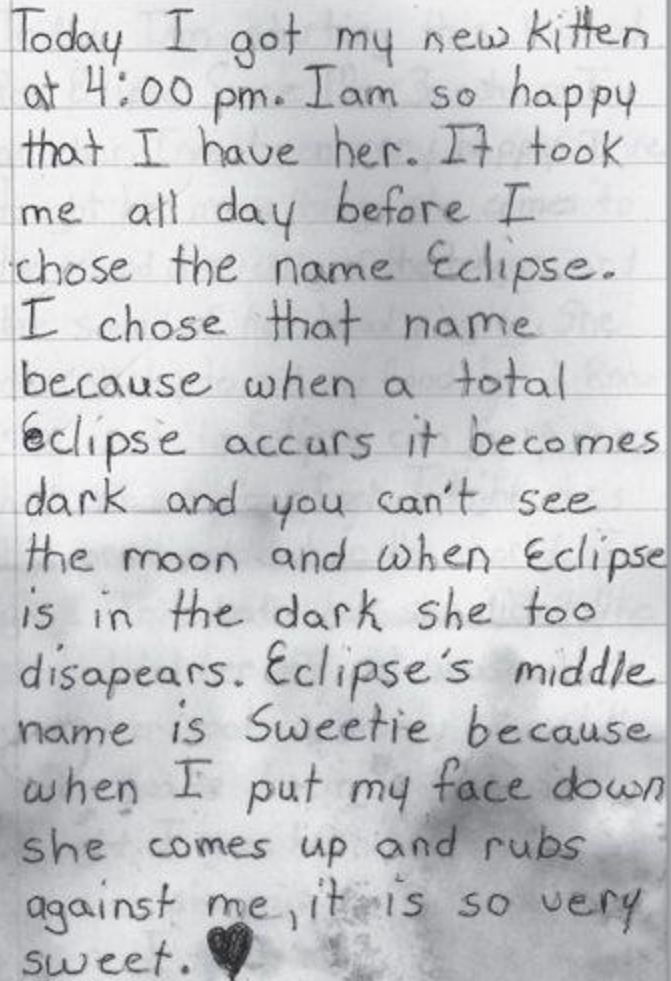 Today I got my new kitten
at 4:00 pm. I am so happy
that I have her. It took
me all day before I
chose the name Eclipse.
I chose that name
because when a total
eclipse accurs it becomes
dark and you can't see
the moon and when Eclipse
is in the dark she too
disapears. Eclipse's middle
name is Sweetie because
when I put my face down
she comes up and rubs
against me, it is so very
sweet. ♥